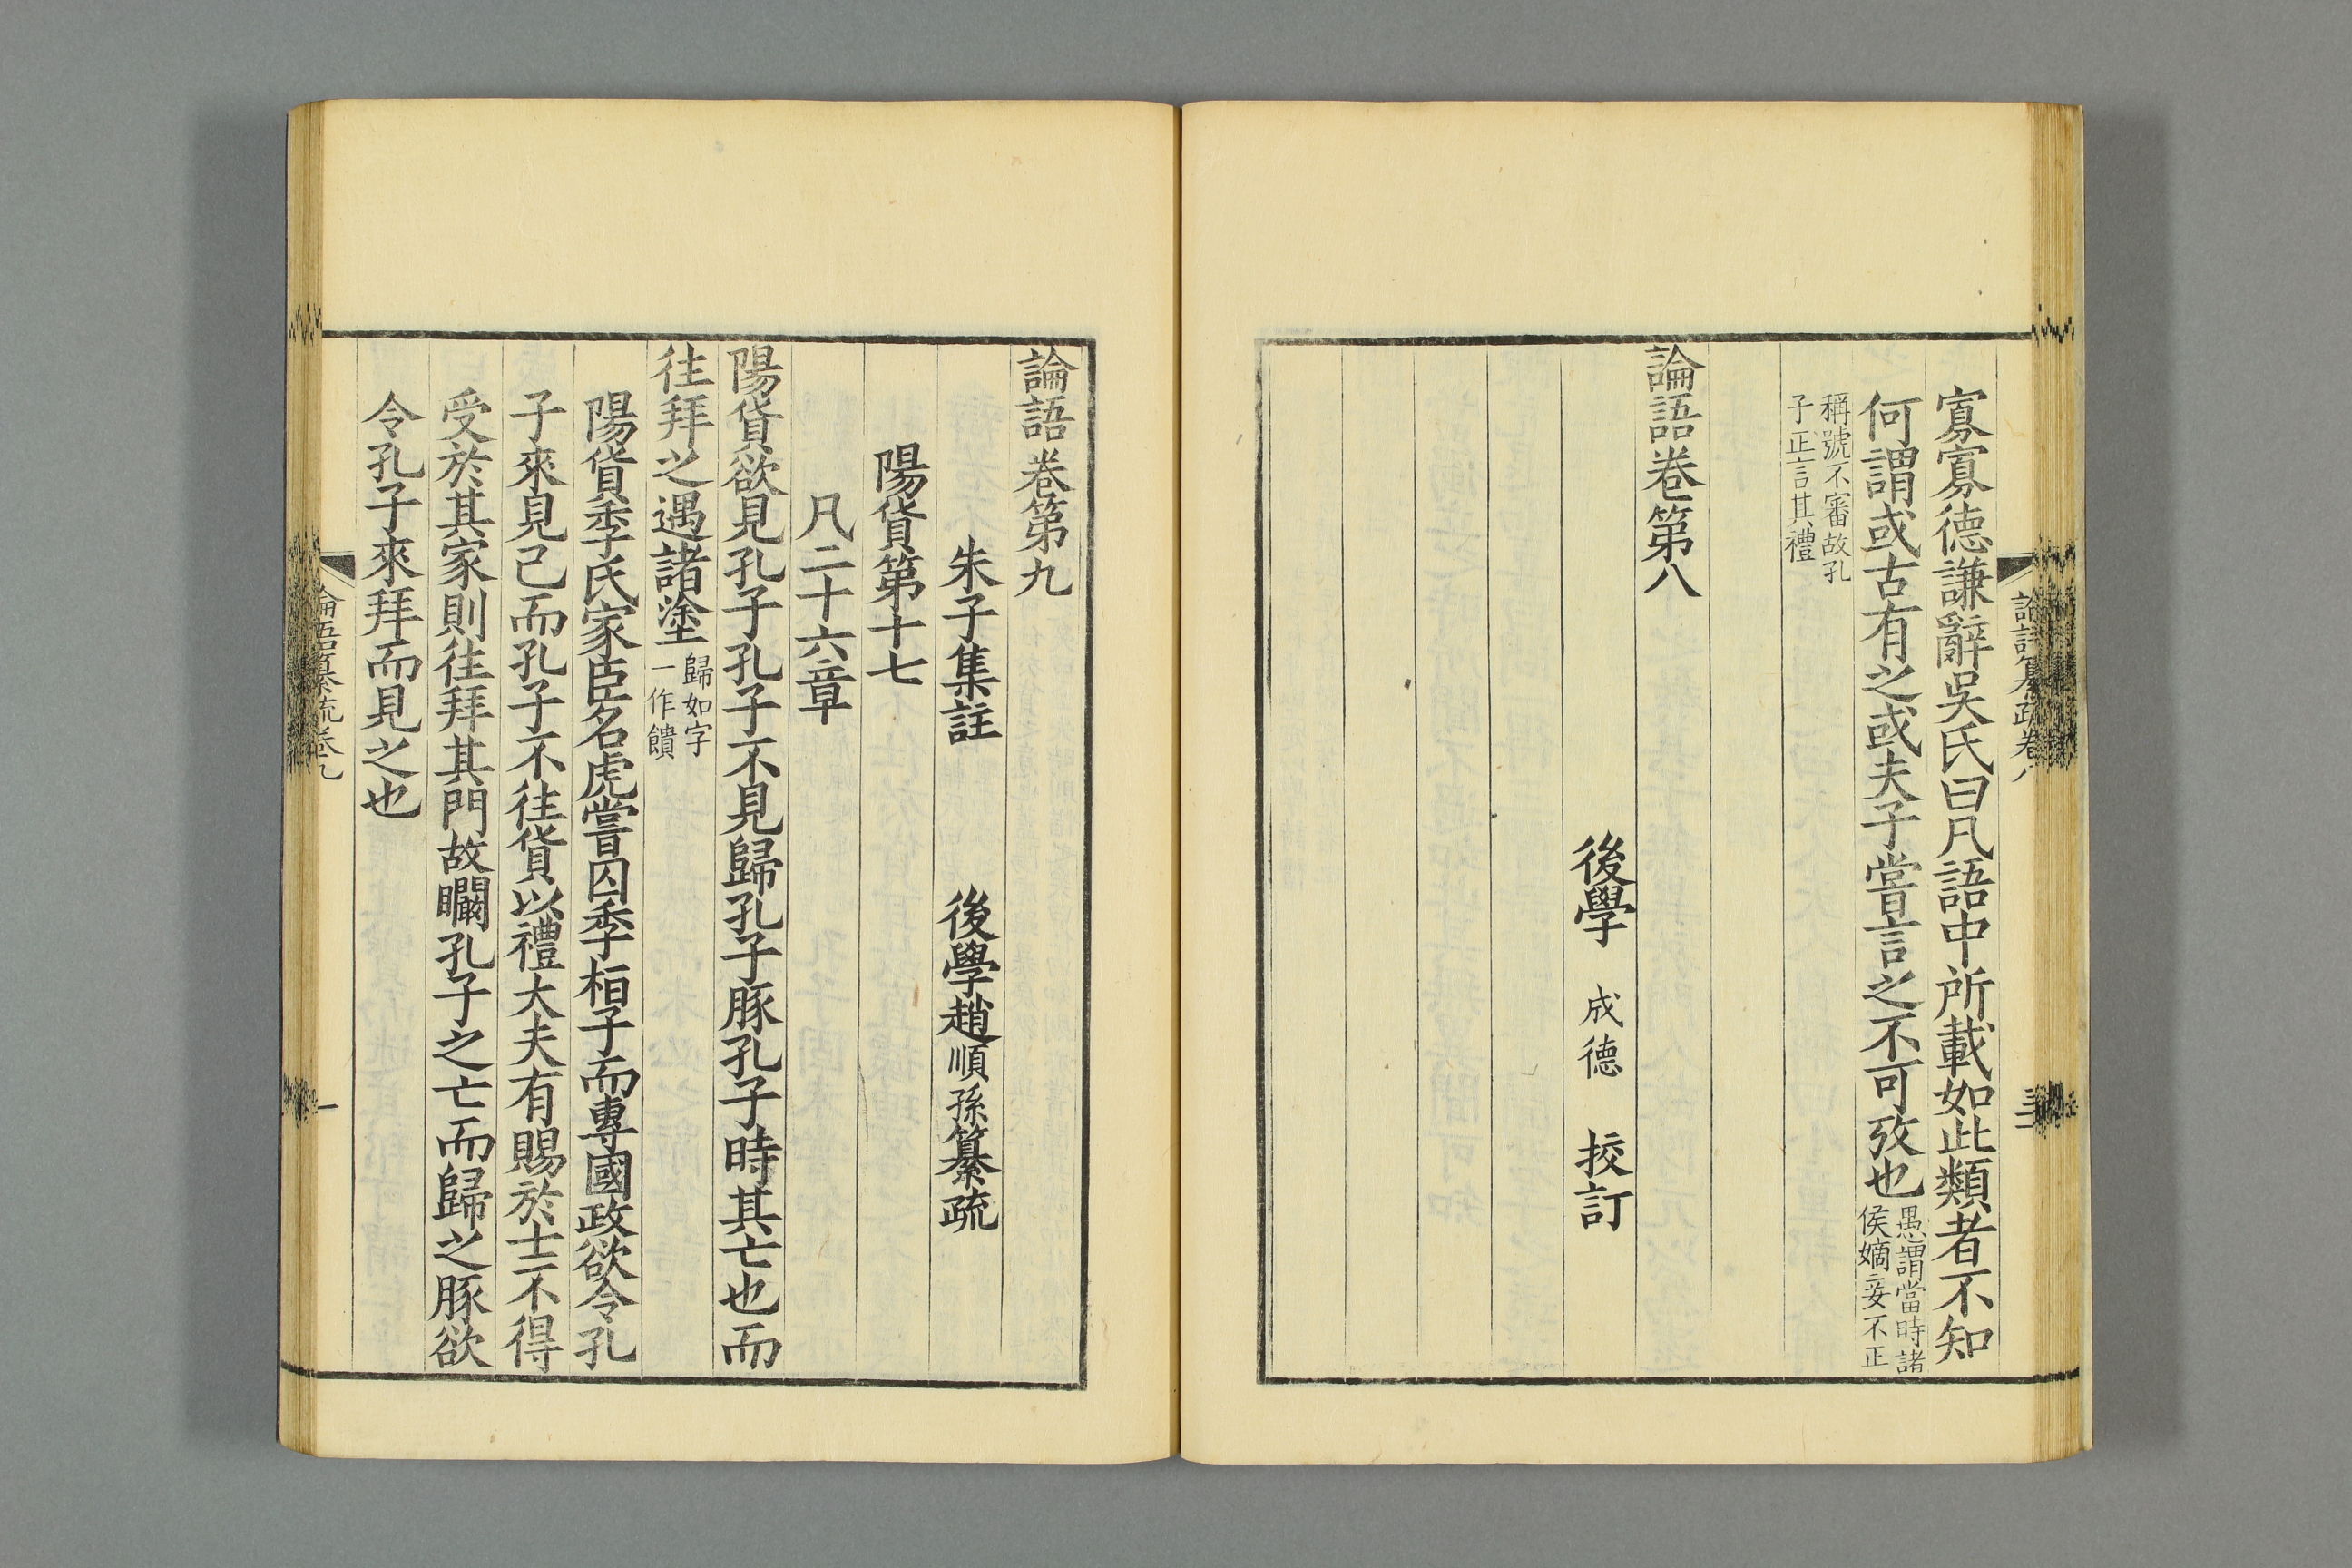 寡寡德謙辭吳氏曰凡語中所載如此類者不知
何謂或古有之或夫子嘗言之不可攷也
愚謂當時諸
侯嫡妾不正
稱號不審故孔
子正言其禮
論語卷第八
後學 成德 挍訂
論語卷第九
朱子集註 後學趙順孫纂疏
陽貨第十七
凡二十六章
陽貨欲見孔子孔子不見歸孔子豚孔子時其亡也而
往拜之遇諸塗
歸如字
一作饋
陽貨季氏家臣名虎嘗囚季桓子而專國政欲令孔
子來見己而孔子不往貨以禮大夫有賜於士不得
受於其家則往拜其門故矙孔子之亡而歸之豚欲
令孔子來拜而見之也
論語纂疏卷九
一